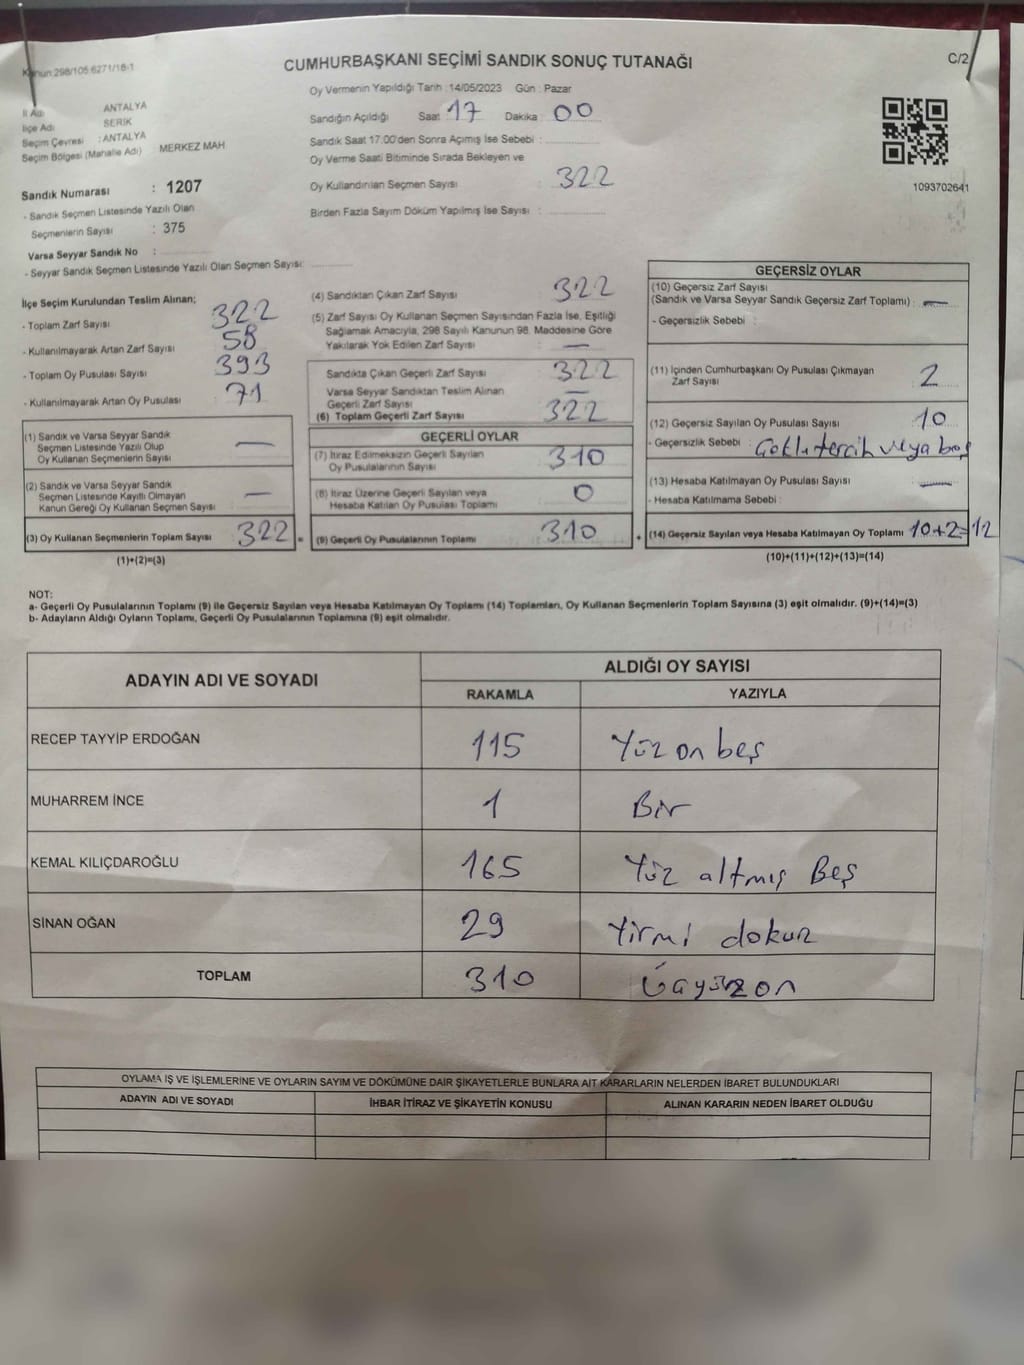 Kanun:298/105:6271/18-1
C/2
CUMHURBAŞKANI SEÇİMİ SANDIK SONUÇ TUTANAĞI
Oy Vermenin Yapıldığı Tarih : 14/05/2023 Gün : Pazar
İl Adı : ANTALYA
İlçe Adı SERİK
Seçim Çevresi : ANTALYA
Seçim Bölgesi (Mahalle Adı) MERKEZ MAH
Sandığın Açıldığı Saat 17 Dakika 00
Sandık Saat 17:00'den Sonra Açımış İse Sebebi :
Oy Verme Saati Bitiminde Sırada Bekleyen ve
Oy Kullandırılan Seçmen Sayısı : 322
Birden Fazla Sayım Döküm Yapılmış İse Sayısı :
1093702641
Sandık Numarası : 1207
- Sandık Seçmen Listesinde Yazılı Olan
Seçmenlerin Sayısı : 375
Varsa Seyyar Sandık No :
- Seyyar Sandık Seçmen Listesinde Yazılı Olan Seçmen Sayısı:
İlçe Seçim Kurulundan Teslim Alınan;
- Toplam Zarf Sayısı 322
- Kullanılmayarak Artan Zarf Sayısı 58
- Toplam Oy Pusulası Sayısı 393
- Kullanılmayarak Artan Oy Pusulası 71
(1) Sandık ve Varsa Seyyar Sandık
Seçmen Listesinde Yazılı Olup
Oy Kullanan Seçmenlerin Sayısı —
(2) Sandık ve Varsa Seyyar Sandık
Seçmen Listesinde Kayıtlı Olmayan
Kanun Gereği Oy Kullanan Seçmen Sayısı —
(3) Oy Kullanan Seçmenlerin Toplam Sayısı 322 =
(1)+(2)=(3)
(4) Sandıktan Çıkan Zarf Sayısı 322
(5) Zarf Sayısı Oy Kullanan Seçmen Sayısından Fazla İse, Eşitliği
Sağlamak Amacıyla, 298 Sayılı Kanunun 98. Maddesine Göre
Yakılarak Yok Edilen Zarf Sayısı —
Sandıkta Çıkan Geçerli Zarf Sayısı 322
Varsa Seyyar Sandıktan Teslim Alınan
Geçerli Zarf Sayısı —
(6) Toplam Geçerli Zarf Sayısı 322
GEÇERLİ OYLAR
(7) İtiraz Edilmeksizin Geçerli Sayılan
Oy Pusulalarının Sayısı 310
(8) İtiraz Üzerine Geçerli Sayılan veya
Hesaba Katılan Oy Pusulası Toplamı 0
(9) Geçerli Oy Pusulalarının Toplamı 310 +
GEÇERSİZ OYLAR
(10) Geçersiz Zarf Sayısı
(Sandık ve Varsa Seyyar Sandık Geçersiz Zarf Toplamı) : —
- Geçersizlik Sebebi :
(11) İçinden Cumhurbaşkanı Oy Pusulası Çıkmayan
Zarf Sayısı 2
(12) Geçersiz Sayılan Oy Pusulası Sayısı 10
- Geçersizlik Sebebi : Çoklu tercih veya boş
(13) Hesaba Katılmayan Oy Pusulası Sayısı —
- Hesaba Katılmama Sebebi :
(14) Geçersiz Sayılan veya Hesaba Katılmayan Oy Toplamı 10+2=12
(10)+(11)+(12)+(13)=(14)
NOT:
a- Geçerli Oy Pusulalarının Toplamı (9) ile Geçersiz Sayılan veya Hesaba Katılmayan Oy Toplamı (14) Toplamları, Oy Kullanan Seçmenlerin Toplam Sayısına (3) eşit olmalıdır. (9)+(14)=(3)
b- Adayların Aldığı Oyların Toplamı, Geçerli Oy Pusulalarının Toplamına (9) eşit olmalıdır.
ADAYIN ADI VE SOYADI ALDIĞI OY SAYISI
RAKAMLA YAZIYLA
RECEP TAYYİP ERDOĞAN 115 Yüz on beş
MUHARREM İNCE 1 Bir
KEMAL KILIÇDAROĞLU 165 Yüz altmış Beş
SİNAN OĞAN 29 Yirmi dokuz
TOPLAM 310 Üçyüzon
OYLAMA İŞ VE İŞLEMLERİNE VE OYLARIN SAYIM VE DÖKÜMÜNE DAİR ŞİKAYETLERLE BUNLARA AİT KARARLARIN NELERDEN İBARET BULUNDUKLARI
ADAYIN ADI VE SOYADI İHBAR İTİRAZ VE ŞİKAYETİN KONUSU ALINAN KARARIN NEDEN İBARET OLDUĞU